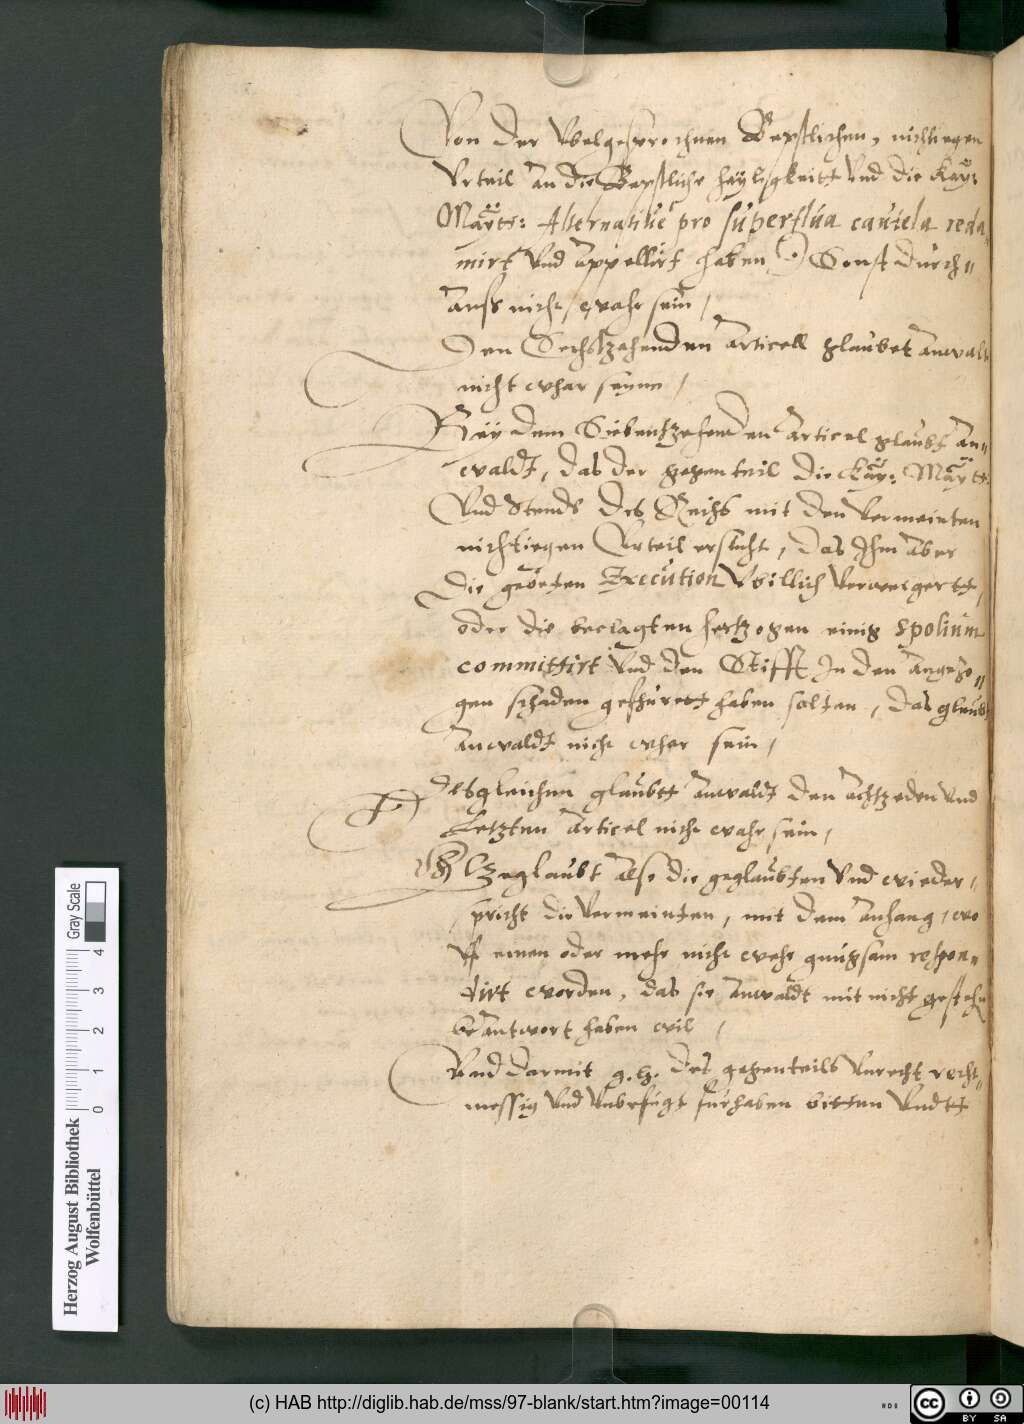 Von der Vbelgesprochnen Bepstlichen, nichtiegen
Vrteil an die Bepstliche heyligkeitt Vnd die Kay:
Maytt: Alternatiue pro superflua cautela recla„
mirt Vnd appellirt haben, Sonst durch„
auss nicht wahr sein,
Den Sechszehenden articell glaubet anwalt
nicht whar seinn,
Bey dem Siebentzehenden articel glaubt an„
waldt, das der gegenteil die Kay: Maytt:
Vnd Stende des Reichs mit den Vermeinten
nichtiegen Vrteil ersucht, das Ihm aber
die gebeten Execution Vbillich Verweigertt,
oder die beclagten hertzogen einig spolium
committirt Vnd den Stifft In den angezo„
gen schaden gefhurett haben solten, das glaubt
anwaldt nicht wher sein,
Desgleichen glaubtt anwaldt den achtzeden Vnd
Letzten articel nicht wahr sein,
glaubt also die geglaubten Vnd wieder„
spricht die Vermeinten, mit dem anhang, wo
Vf einen oder mehr nicht wehr gnugsam respon„
dirt worden, das sie anwaldt mit nicht gestehn
beantwort haben wil,
Vnd darmit g. h. des gegenteils Vnrecht recht„
messig Vnd Vnbefugt furhaben bitten Vndtt
Herzog August Bibliothek
Wolfenbüttel
0 1 2 3 4
Gray Scale
(c) HAB http://diglib.hab.de/mss/97-blank/start.htm?image=00114
HAB
cc BY SA